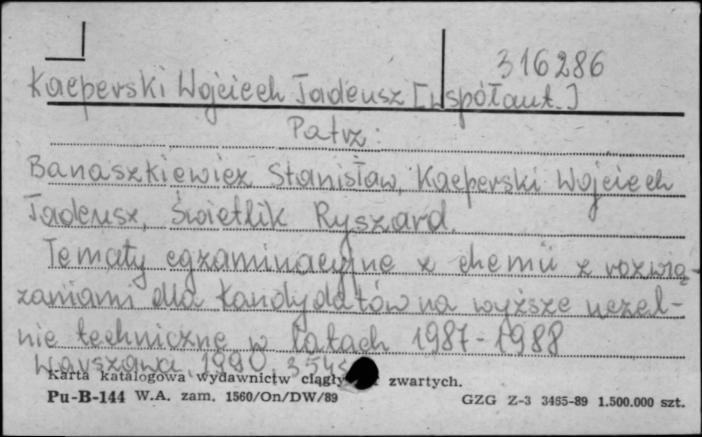 316286
Kacperski Wojciech Tadeusz [współaut.]
Patrz:
Banaszkiewicz Stanisław, Kacperski Wojciech
Tadeusz, Świetlik Ryszard.
Tematy egzaminacyjne z chemii z rozwią-
zaniami dla kandydatów na wyższe uczel-
nie techniczne w latach 1987-1988
Warszawa, 1990
Karta katalogowa wydawnictw zwartych.
Pu-B-144 W.A. zam. 1560/On/DW/89 GZG Z-3 3485-89 1.500.000 szt.